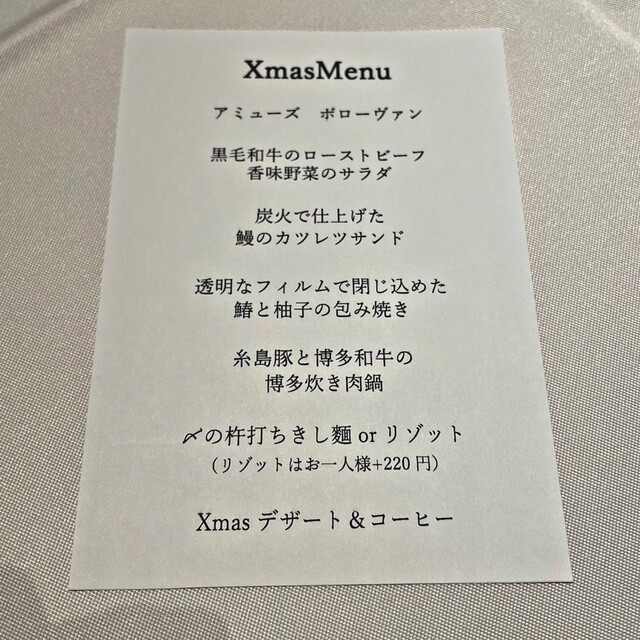 XmasMenu
アミューズ　ボローヴァン
黒毛和牛のローストビーフ
香味野菜のサラダ
炭火で仕上げた
鰻のカツレツサンド
透明なフィルムで閉じ込めた
鰆と柚子の包み焼き
糸島豚と博多和牛の
博多炊き肉鍋
〆の杵打ちきし麺 or リゾット
（リゾットはお一人様+220 円）
Xmas デザート＆コーヒー